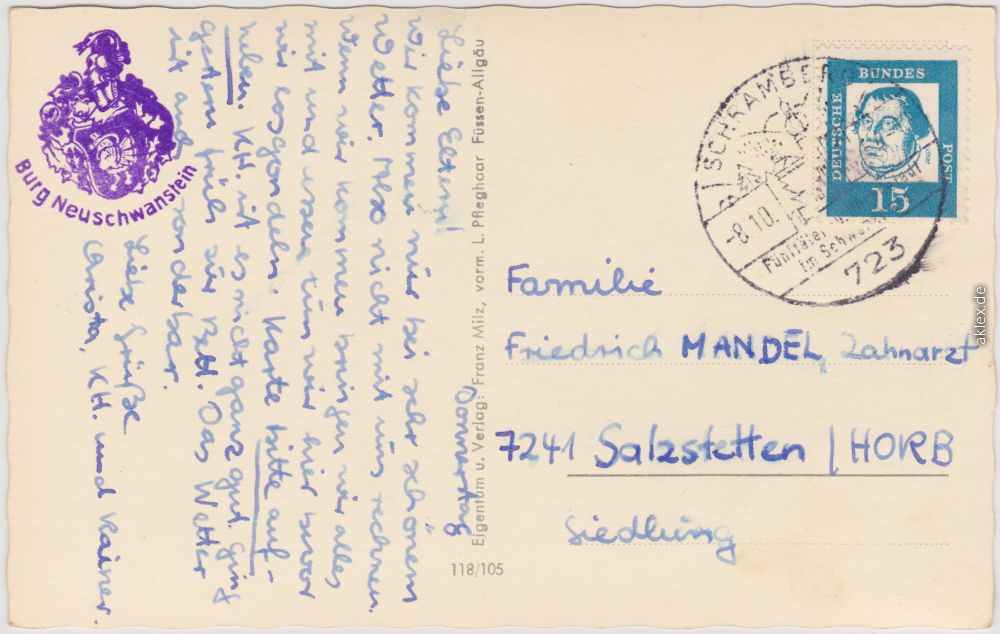 Burg Neuschwanstein
Donnerstag
Liebe Eltern!
Wir kommen nur bei sehr schönem
Wetter. Also nicht mit uns rechnen.
Wenn wir kommen bringen wir alles
mit und essen tun wir hier bevor
wir losgondeln. Karte bitte auf-
heben. KH. ist es nicht ganz gut. Ging
gestern früh zur Bett. Das Wetter
ist wunderbar.
Liebe Grüße
Christa, KH. und Rainer.
Eigentum u. Verlag: Franz Milz, vorm. L. Pfleghaar Füssen-Allgäu
118/105
SCHRAMBERG
-8.10.
Fünftäler
im Schwarz
723
DEUTSCHE
BUNDES
POST
15
Familie
Friedrich MANDEL, Zahnarzt
7241 Salzstetten / HORB
Siedlung
aklex.de